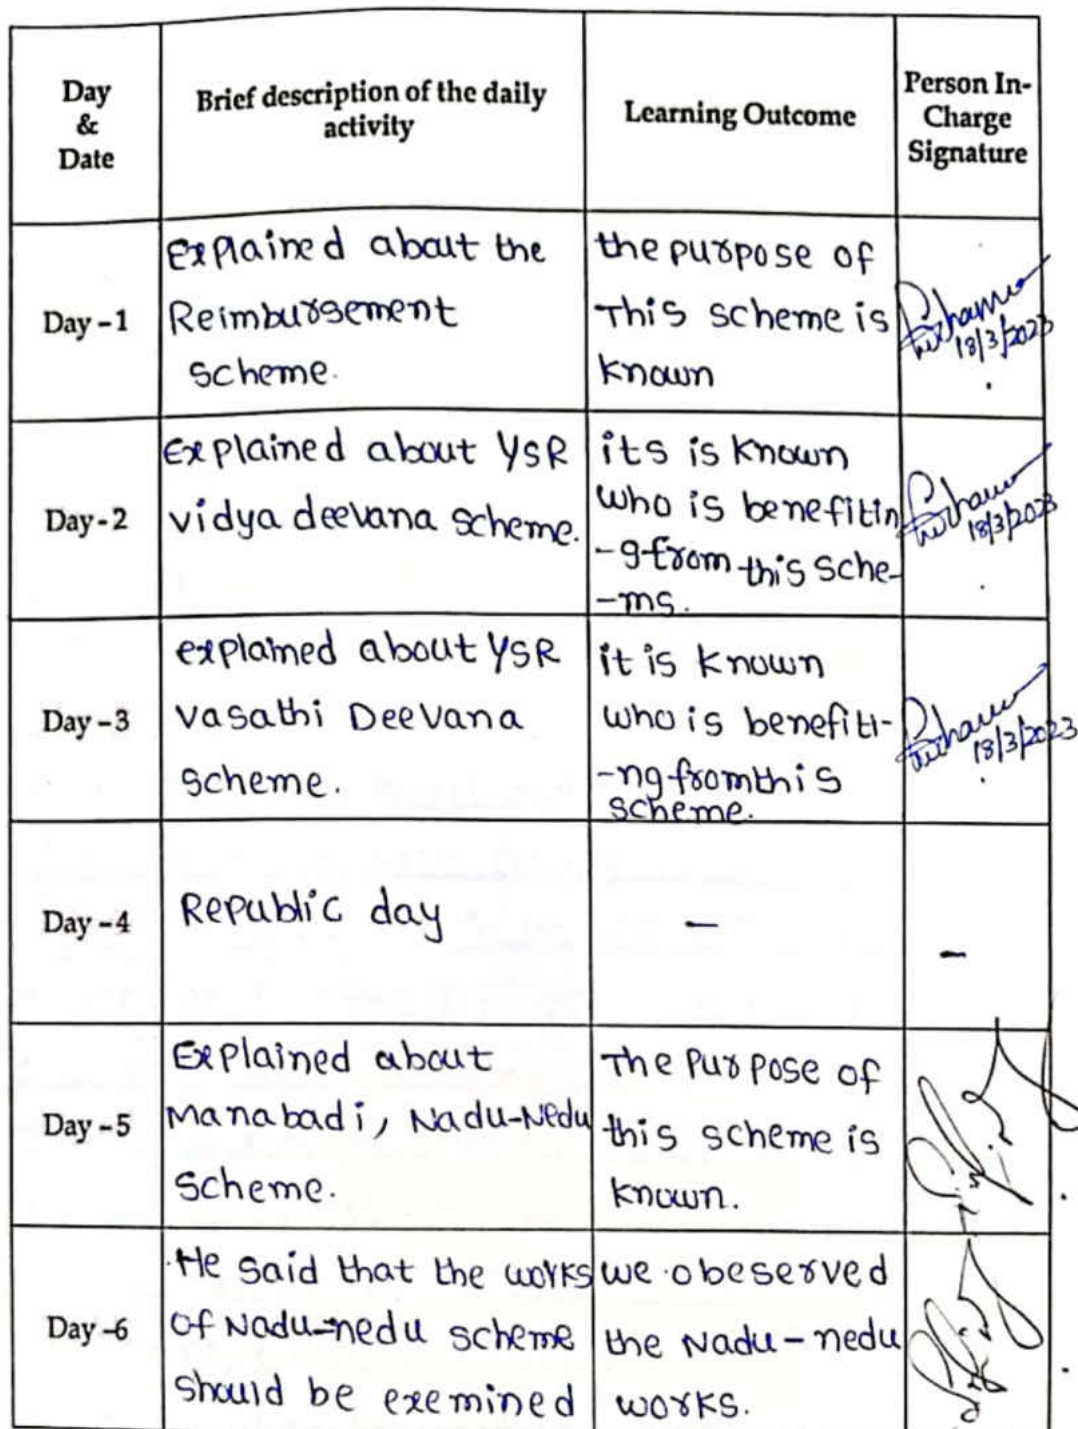 Day
&
Date
Brief description of the daily
activity
Learning Outcome
Person In-
Charge
Signature
Day - 1
Explained about the
Reimbursement
scheme.
the purpose of
This scheme is
known
18/3/2023
Day - 2
Explained about YSR
vidya deevana scheme.
its is known
who is benefitin
-g from this sche-
-ms.
18/3/2023
Day - 3
explained about YSR
vasathi Deevana
scheme.
it is known
who is benefiti-
-ng from this
scheme.
18/3/2023
Day - 4
Republic day
-
-
Day - 5
Explained about
Manabadi, Nadu-Nedu
scheme.
The purpose of
this scheme is
known.
Day -6
He said that the works
of Nadu-nedu scheme
should be exemined
we obeserved
the Nadu - nedu
works.